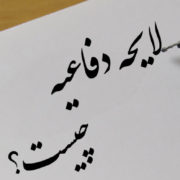 لایحه دفاعیه
چیست؟